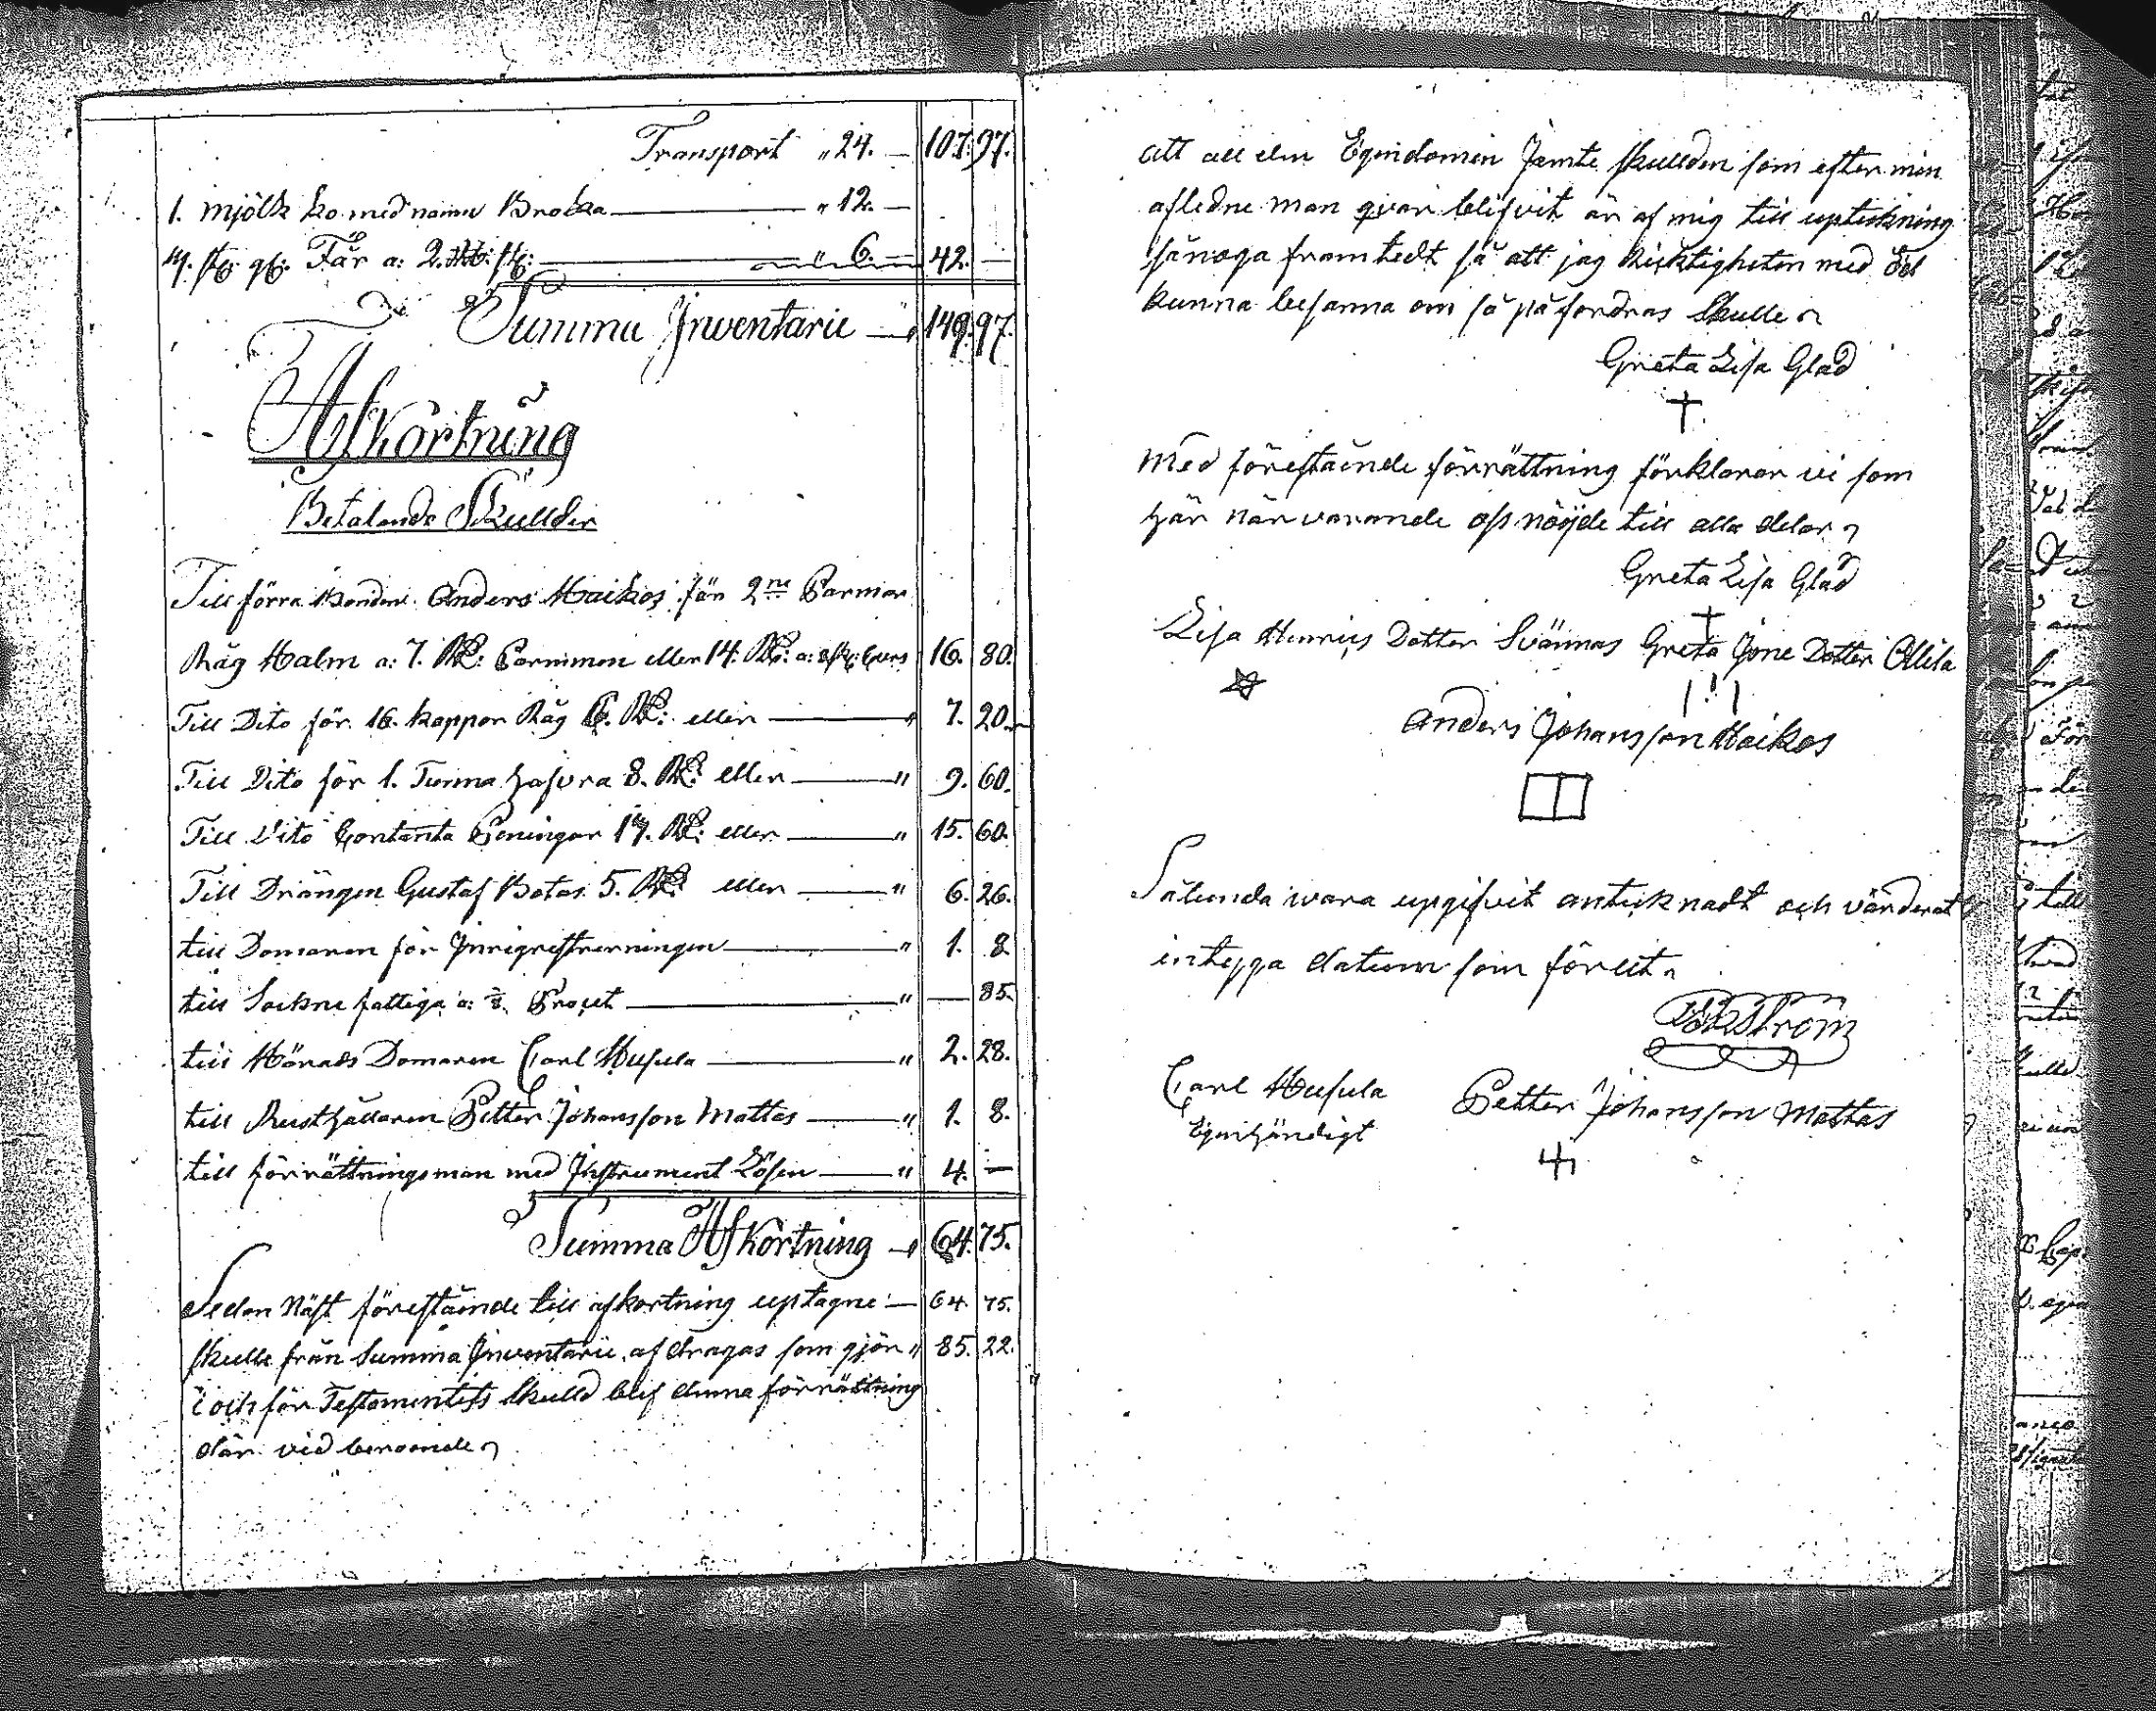 Transport " 24. — 107. 97.
1. mjölk ko med namn Broka — " 12. —
4. st: gl: Får a: 2. st: — " 6. — 42. —
Summa Inventarie — " 149. 97.
Afkortning
Betalande Skullder
Till förra Bonden Anders Haikos för 2ne Parmar
Råg Halm a: 7. Rd: Parmmen eller 14. Rd: a: 16. 80.
Till Dito för 16. kappor Råg 6. Rd: eller — " 7. 20.
Till Dito för 1. Tunna hafvra 8. Rd: eller — " 9. 60.
Till Dito Contanta Peningar 14. Rd: eller — " 15. 60.
Till Drängen Gustaf Botas 5. Rd: eller — " 6. 26.
till Domaren för Inrigrestrerningen — " 1. 8
till Sockne fattiga a: ⅛ Procet — " — 85.
till Härads Domaren Carl Hufula — " 2. 28.
till Rusthållaren Petter Johansson Mattas — " 1. 8.
till förrättningsman med Instrument Lösen — " 4. —
Summa Afkortning — " 64. 75.
Sedan Näst föreståinde till afkortning uptagne — 64. 75.
skulle från Summa Inventarie afdragas som gjör " 85. 22.
och för Testamentets Skulld blef denna förrättning
där vid beroende
att all den Egendomen Jemte skullden som efter min
afledne man qvar blifvit är af mig till upteckning
så noga framtedt så att jag Ricktigheten med Ed
kunna besanna om så på fordras Skulle
Greta Lisa Glad
Med föreståinde förrättning förklarar vi som
här närvarande oss nöijde till alla delar
Greta Lisa Glad
Lisa Henrics Dotter Svännas Greta Jone Dotter Ollila
Anders Johansson Haikos
Sålunda wara upgifvit antecknadt och värderat
intyga datum som förut
Carl Hufula Petter Johansson Mattas
Egenhändigt